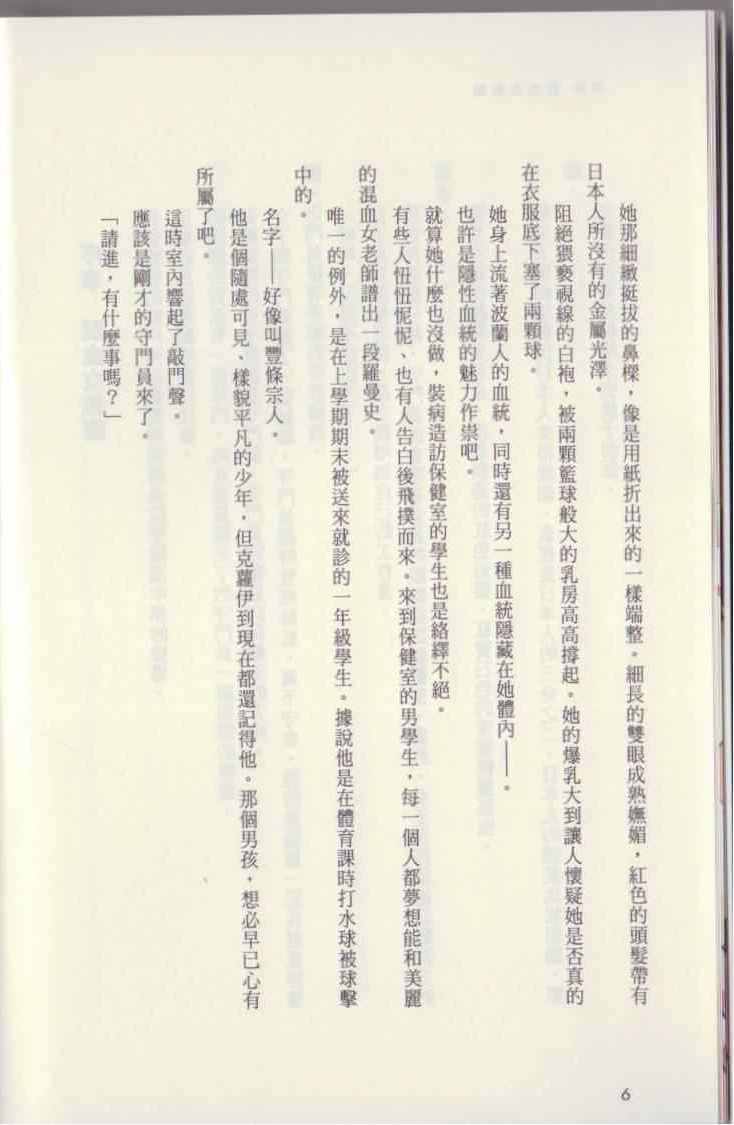 她那細緻挺拔的鼻樑，像是用紙折出來的一樣端整。細長的雙眼成熟嫵媚，紅色的頭髮帶有
日本人所沒有的金屬光澤。
阻絕猥褻視線的白袍，被兩顆籃球般大的乳房高高撐起。她的爆乳大到讓人懷疑她是否真的
在衣服底下塞了兩顆球。
她身上流著波蘭人的血統，同時還有另一種血統隱藏在她體內——。
也許是隱性血統的魅力作祟吧。
就算她什麼也沒做，裝病造訪保健室的學生也是絡繹不絕。
有些人忸忸怩怩、也有人告白後飛撲而來。來到保健室的男學生，每一個人都夢想能和美麗
的混血女老師譜出一段羅曼史。
唯一的例外，是在上學期期末被送來就診的一年級學生。據說他是在體育課時打水球被球擊
中的。
名字——好像叫豐條宗人。
他是個隨處可見、樣貌平凡的少年，但克蘿伊到現在都還記得他。那個男孩，想必早已心有
所屬了吧。
這時室內響起了敲門聲。
應該是剛才的守門員來了。
「請進，有什麼事嗎？」
6